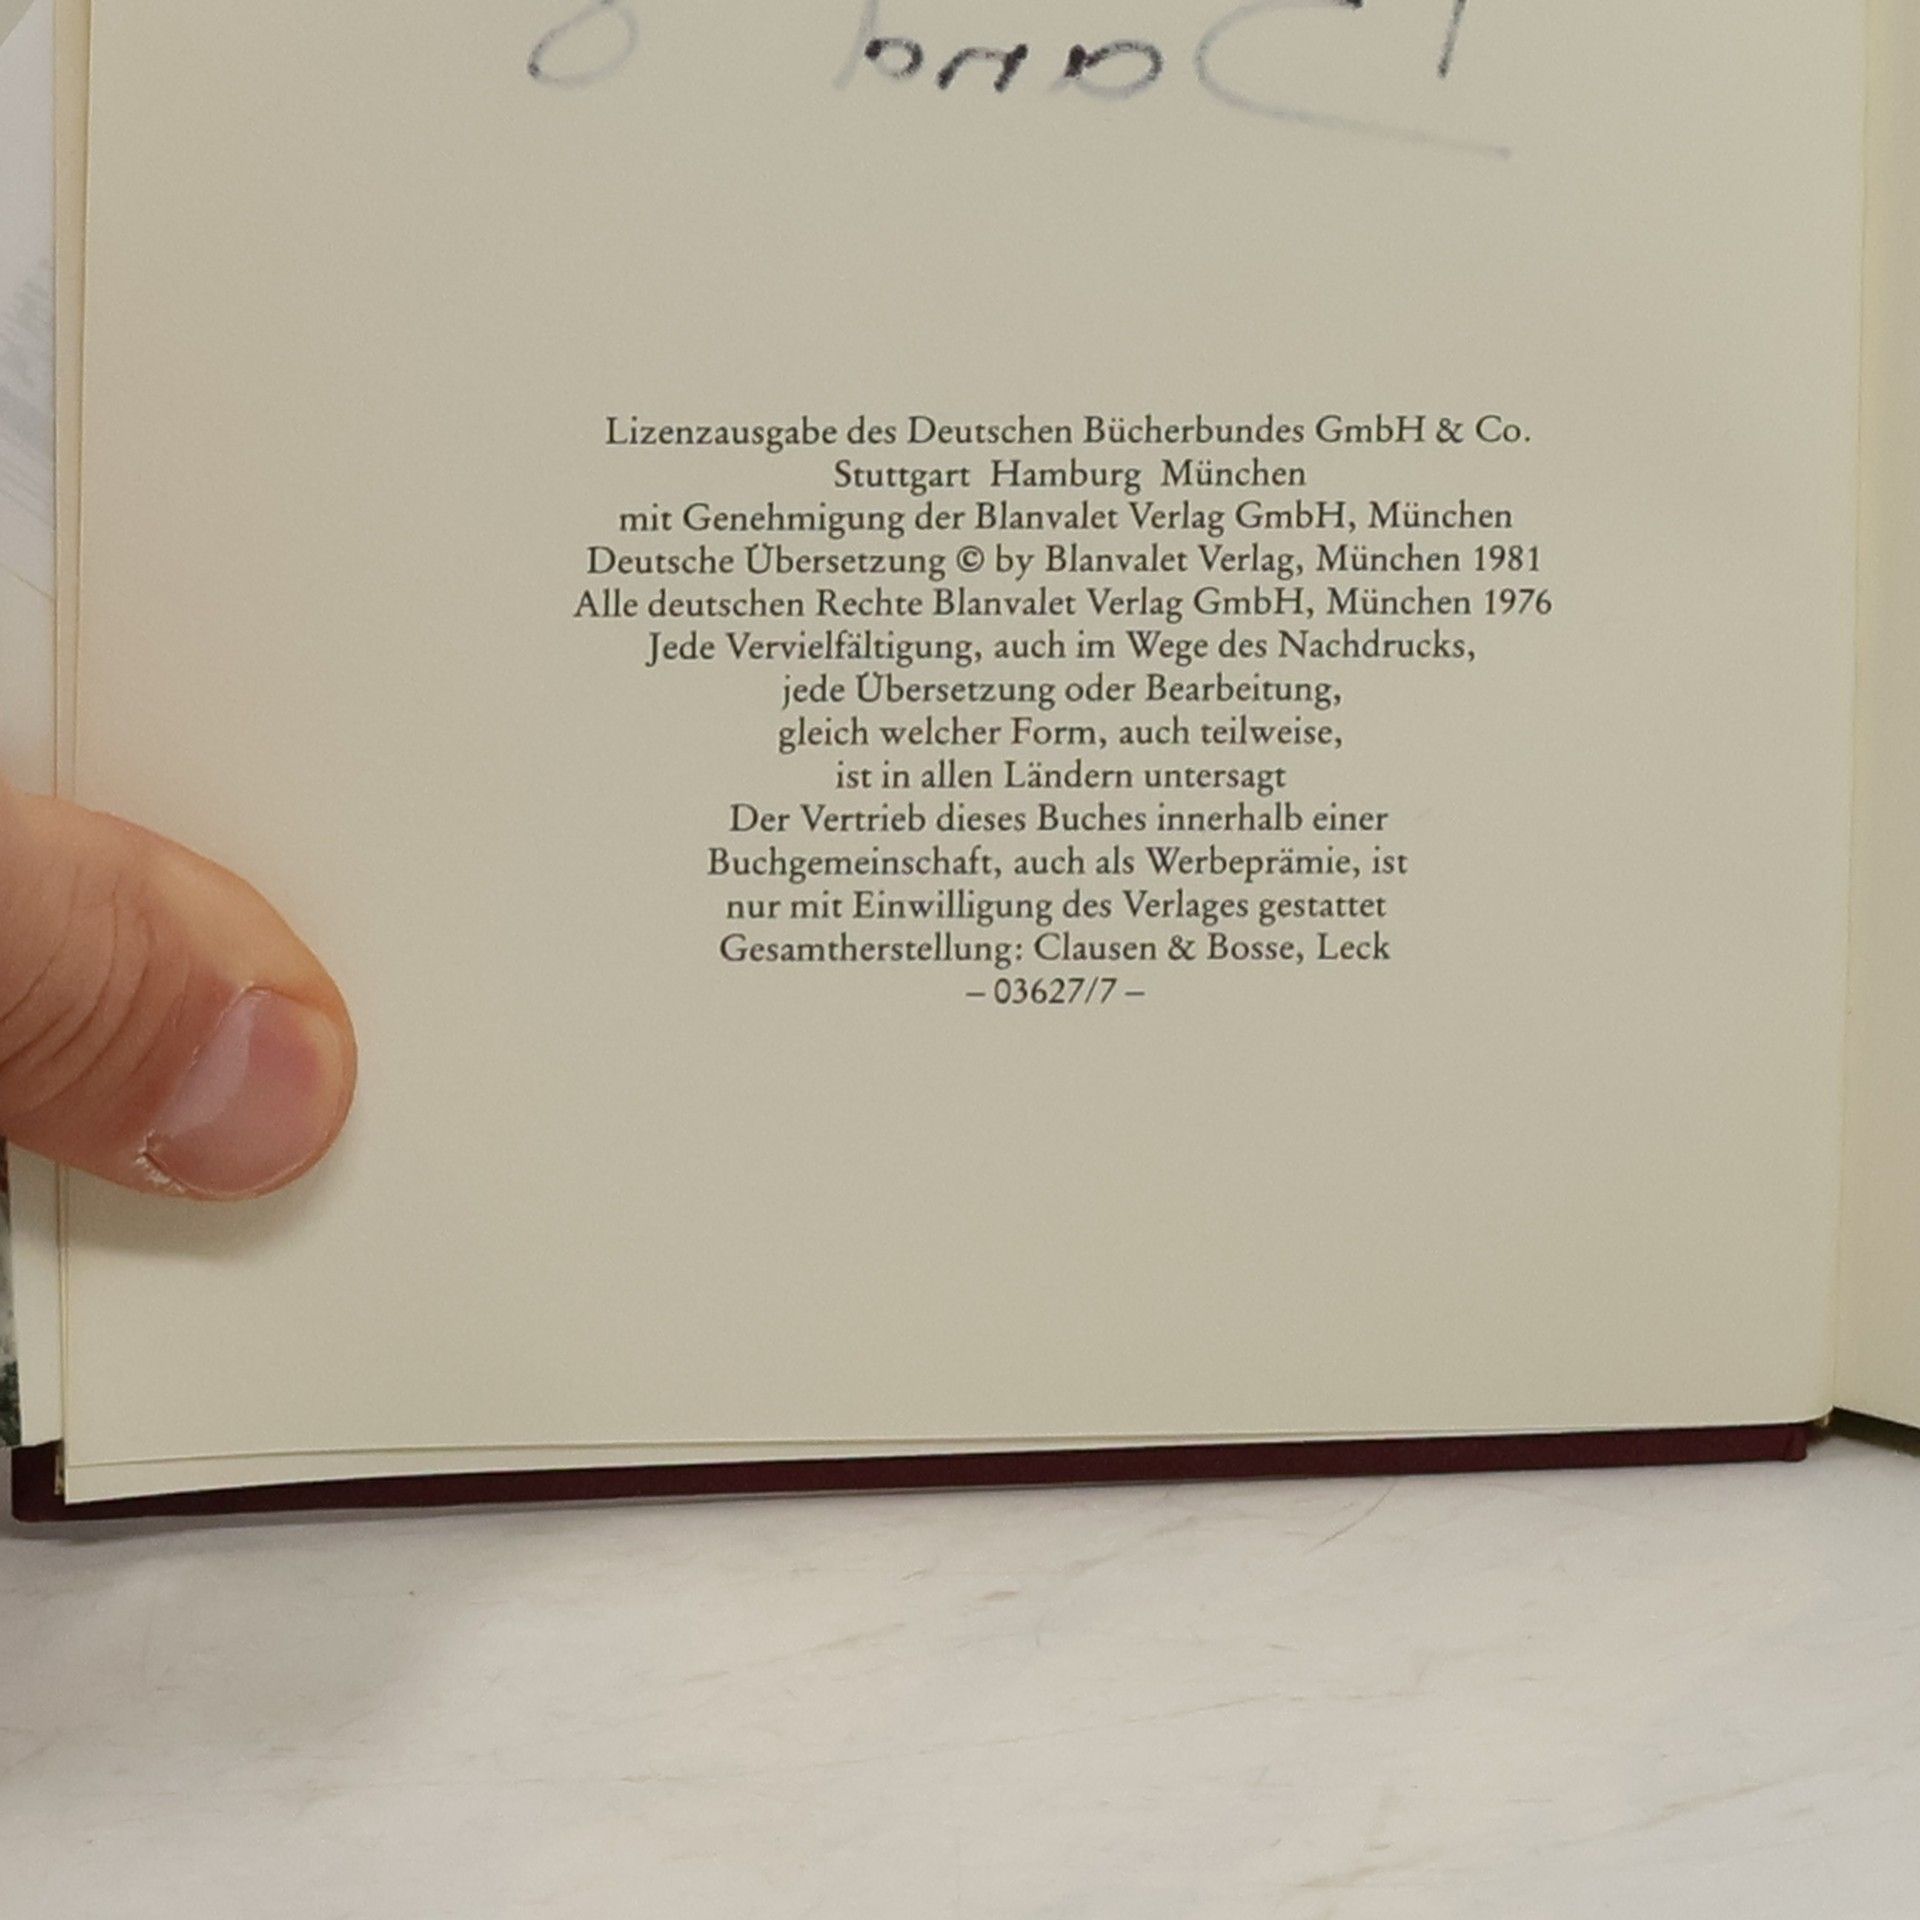 Lizenzausgabe des Deutschen Bücherbundes GmbH & Co.
Stuttgart Hamburg München
mit Genehmigung der Blanvalet Verlag GmbH, München
Deutsche Übersetzung © by Blanvalet Verlag, München 1981
Alle deutschen Rechte Blanvalet Verlag GmbH, München 1976
Jede Vervielfältigung, auch im Wege des Nachdrucks,
jede Übersetzung oder Bearbeitung,
gleich welcher Form, auch teilweise,
ist in allen Ländern untersagt
Der Vertrieb dieses Buches innerhalb einer
Buchgemeinschaft, auch als Werbeprämie, ist
nur mit Einwilligung des Verlages gestattet
Gesamtherstellung: Clausen & Bosse, Leck
– 03627/7 –